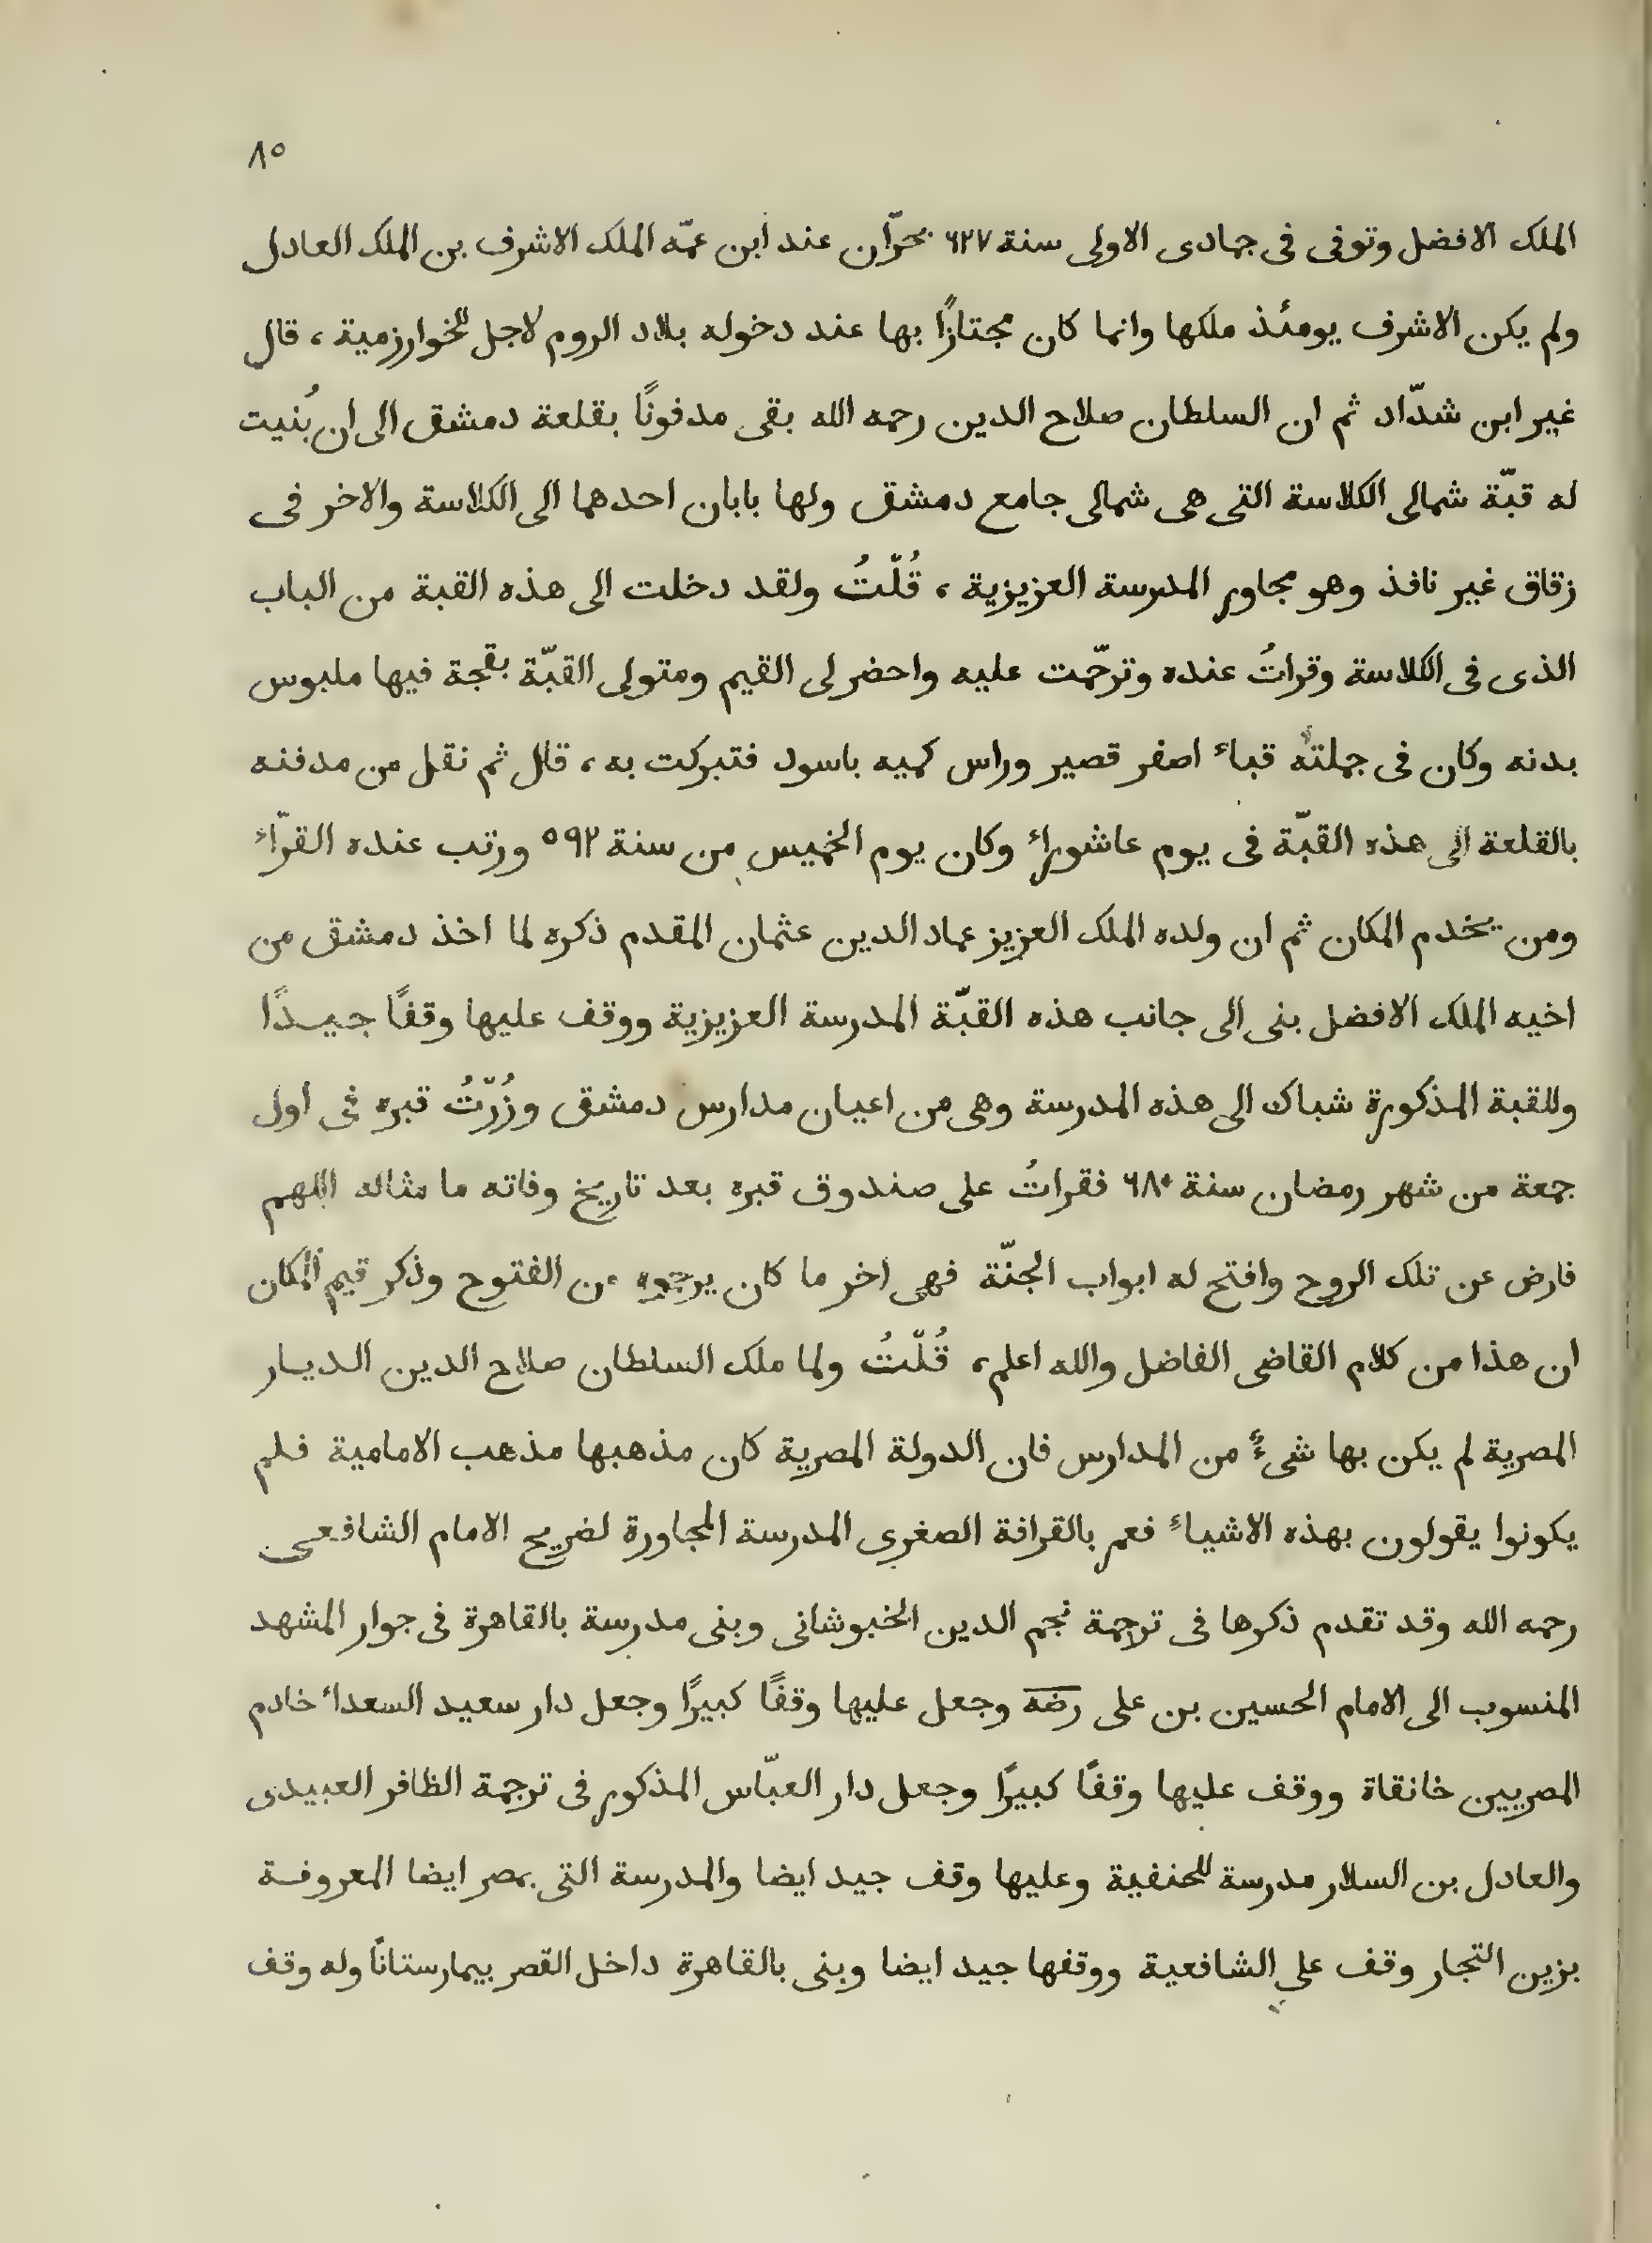 ٨٥
الملك الافضل وتوفى فى جمادى الاولى سنة ٦٢٧ بحرّان عند ابن عمّه الملك الاشرف بن الملك العادل
ولم يكن الاشرف يومئذ ملكها وانما كان مجتازًا بها عند دخوله بلاد الروم لاجل الخوارزمية ، قال
غير ابن شدّاد ثم ان السلطان صلاح الدين رحمه الله بقى مدفونًا بقلعة دمشق الى ان بُنيت
له قبّة شمالى الكلاسة التى هى شمالى جامع دمشق ولها بابان احدهما الى الكلاسة والاخر فى
زقاق غير نافذ وهو مجاور المدرسة العزيزية ، قُلّتُ ولقد دخلت الى هذه القبة من الباب
الذى فى الكلاسة وقراتُ عنده وترحّمت عليه واحضر لى القيم ومتولى القبّة بقجة فيها ملبوس
بدنه وكان فى جملته قباء اصفر قصير وراس كميه باسود فتبركت به ، قال ثم نقل من مدفنه
بالقلعة الى هذه القبّة فى يوم عاشوراء وكان يوم الخميس من سنة ٥٩٢ ورتب عنده القرّاء
ومن يخدم المكان ثم ان ولده الملك العزيز عماد الدين عثمان المقدم ذكره لما اخذ دمشق من
اخيه الملك الافضل بنى الى جانب هذه القبّة المدرسة العزيزية ووقف عليها وقفًا جيدًا
وللقبة المذكورة شباك الى هذه المدرسة وهى من اعيان مدارس دمشق وزُرّتُ قبره فى اول
جمعة من شهر رمضان سنة ٦٨٠ فقراتُ على صندوق قبره بعد تاريخ وفاته ما مثاله اللهم
فارض عن تلك الروح وافتح له ابواب الجنّة فهى اخر ما كان يرجوه من الفتوح وذكر قيم المكان
ان هذا من كلام القاضى الفاضل والله اعلم ، قُلّتُ ولما ملك السلطان صلاح الدين الديار
المصرية لم يكن بها شىءٌ من المدارس فان الدولة المصرية كان مذهبها مذهب الامامية فلم
يكونوا يقولون بهذه الاشياء فعمر بالقرافة الصغرى المدرسة المجاورة لضريح الامام الشافعى
رحمه الله وقد تقدم ذكرها فى ترجمة نجم الدين الخبوشانى وبنى مدرسة بالقاهرة فى جوار المشهد
المنسوب الى الامام الحسين بن على رضه وجعل عليها وقفًا كبيرًا وجعل دار سعيد السعداء خادم
المصريين خانقاة ووقف عليها وقفًا كبيرًا وجعل دار العبّاس المذكور فى ترجمة الظافر العبيدى
والعادل بن السلار مدرسة للحنفية وعليها وقف جيد ايضا والمدرسة التى بمصر ايضا المعروفة
بزين التجار وقف على الشافعية ووقفها جيد ايضا وبنى بالقاهرة داخل القصر بيمارستانًا وله وقف